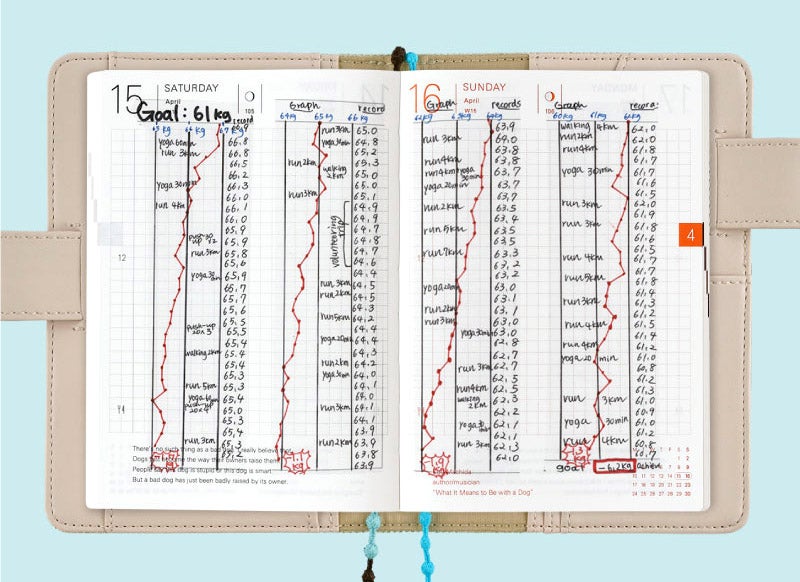 15 SATURDAY
April
105
Goal: 61kg
record
65 kg 66 kg 67 kg
yoga 60min 66,8
run 3km 66,8
66,5
66,2
yoga 30min 66,3
66,0
run 4km 66,1
66,0
65,9
push-up 65,9
run 3km 65,8
12
65,6
yoga 30min 65,9
65,7
65,7
65,6
65,5
push-up 20x3 65,5
65,4
walking 2km 65,4
65,3
run 5km 65,3
yoga 65,4
push-up 20x4 65,0
65,4
run 3km 65,3
65,2
Graph record
64kg 65 kg 66 kg
run 3km 65,0
yoga 30min 64,8
65,2
run 2km 65,3
walking 2km 65,0
65,0
run 3km 65,1
64,9
64,9
volunteering trip
64,7
64,8
64,7
64,6
64,4
run 3km 64,5
run 2km 64,3
run 5km 64,2
64,4
yoga 20min 64,4
64,3
run 2km 64,2
yoga 30min 64,0
64,1
64,0
run 3km 64,1
64,1
63,9
run 2km 63,9
63,8
63,9
-1.1 kg
There's no such thing as a bad dog. I really believe that.
Dogs just become the way their owners raise them.
People say this dog is stupid or this dog is smart.
But a bad dog has just been badly raised by its owner.
16 SUNDAY
April
W16
106
Graph records
62kg 63kg 64kg
63,9
run 3km 64,0
63,8
run 4km 63,8
run 4km yoga 30min 63,7
yoga 20min 63,7
63,7
run 2km 63,5
63,4
run 5km 63,5
63,5
run 7km 63,3
63,2
63,2
yoga 20min 63,0
63,1
run 2km 63,1
run 3km 63,0
yoga 30min 63,0
62,8
62,7
run 3km 62,7
62,5
run 4km 62,5
walking 2km 62,3
62,2
62,1
yoga 30min 62,1
run 3km 62,3
62,0
-1.9 kg
author/musician
"What It Means to Be with a Dog"
Graph record
60kg 61kg 62kg
walking 4km 62,0
run 2km 61,7
run 4km 61,8
61,7
yoga 30min 61,7
61,6
61,5
run 3km 62,0
61,9
run 3km 61,8
61,6
61,8
run 4km 61,7
61,7
run 5km 61,8
61,4
run 3km 61,3
61,2
run 4km 61,5
61,4
run 4km 61,2
yoga 20 min 61,0
60,8
61,2
61,3
run 3km 61,0
60,9
yoga 30min 61,0
61,2
run 4km 60,8
60,7
goal -6,2kg achieve
4